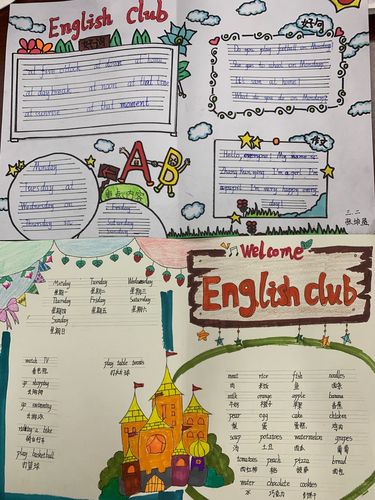 English Club
好词
好句
at dawn at home
at daybreak at noon at that time
at sunrise at that moment
Do you play football on Monday?
What do you do on Monday?
Monday
Tuesday at
Wednesday on
Thursday
Friday
Saturday
Sunday
A B
作文
Hello, everyone! My name is
I'm a girl. I'm
I'm very happy every
day!
三.二
Welcome
English club
Monday Tuesday Wednesday
星期一 星期二 星期三
Thursday Friday Saturday
星期四 星期五 星期六
Sunday
星期日
watch TV
看电视
play table tennis
打乒乓球
go shopping
去购物
go swimming
去游泳
riding a bike
play basketball
打篮球
meat rice fish noodles
肉 米饭 鱼 面条
milk orange apple banana
牛奶 橙子 苹果 香蕉
pear egg cake chicken
梨 蛋 蛋糕 鸡肉
soup potatoes watermelon grapes
汤 土豆 西瓜 葡萄
tomatoes peach pizza bread
西红柿 桃 披萨 面包
water chocolate cookies
水 巧克力